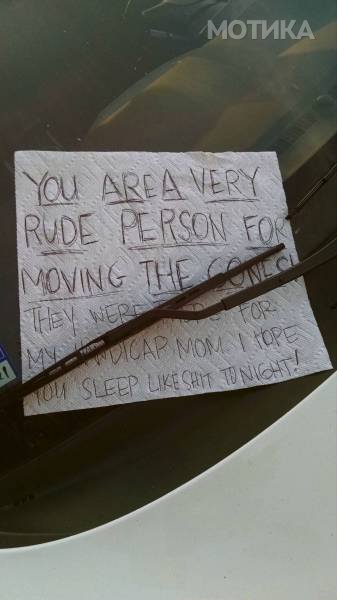 МОТИКА
YOU ARE A VERY
RUDE PERSON FOR
MOVING THE CONES!
THEY WERE FOR
MY HANDICAP MOM. I HOPE
YOU SLEEP LIKE SHIT TONIGHT!